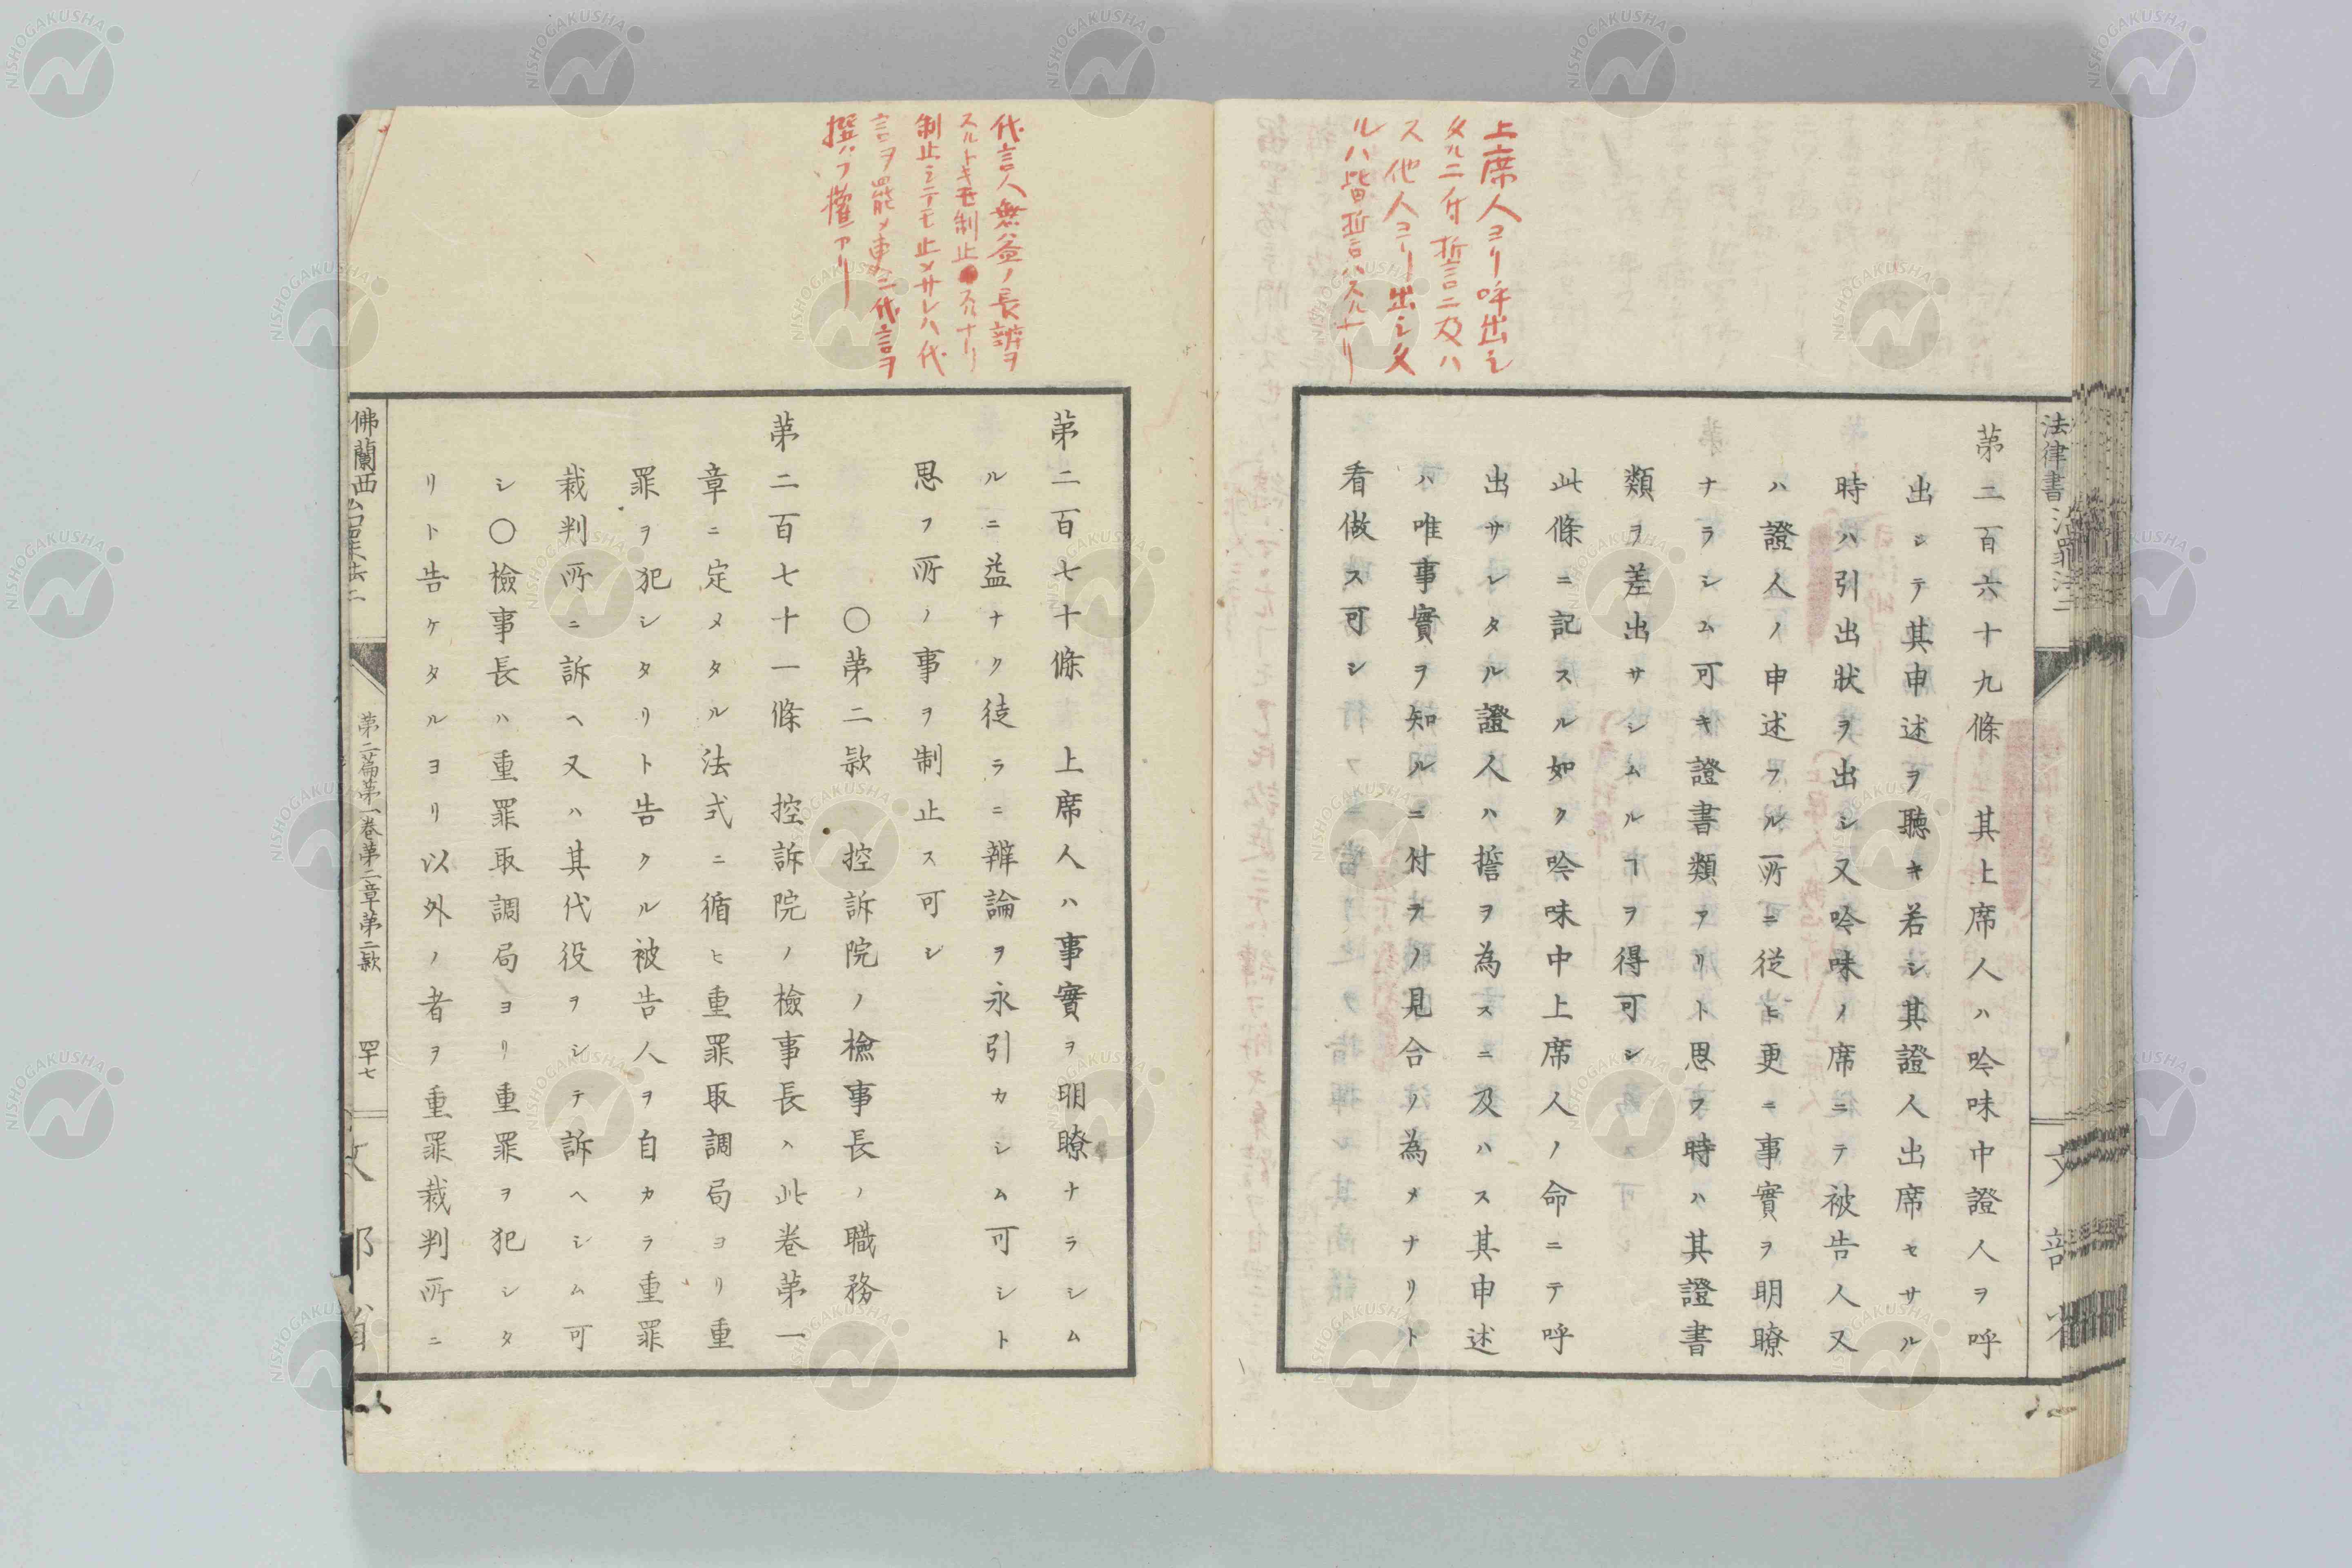 上席人ヨリ呼出シ
タルニ付誓言ニ及ハ
ス他人ヨリ出シタ
ルハ皆誓言ハスルナリ
法律書 治罪法二
文部省
第二百六十九條 其上席人ハ吟味中證人ヲ呼
出シテ其申述ヲ聴キ若シ其證人出席セサル
時ハ引出狀ヲ出シ又吟味ノ席ニテ被告人又
ハ證人ノ申述フル所ニ從ヒ更ニ事實ヲ明瞭
ナラシム可キ證書類アリト思フ時ハ其證書
類ヲ差出サシムルヿヲ得可シ
此條ニ記スル如ク吟味中上席人ノ命ニテ呼
出サレタル證人ハ誓ヲ為スニ及ハス其申述
ハ唯事實ヲ知ルニ付テノ見合ノ為メナリト
看做ス可シ
代言人無益ノ長辨ヲ
スルトキ制止スルナリ
制止シテモ止メサレハ代
言ヲ罷メ更ニ代言ヲ
撰ハフ權アリ
第二百七十條 上席人ハ事實ヲ明瞭ナラシム
ルニ益ナク徒ラニ辨論ヲ永引カシム可シト
思フ所ノ事ヲ制止ス可シ
〇第二款 控訴院ノ檢事長ノ職務
第二百七十一條 控訴院ノ檢事長ハ此卷第一
章ニ定メタル法式ニ循ヒ重罪取調局ヨリ重
罪ヲ犯シタリト告クル被告人ヲ自カラ重罪
裁判所ニ訴ヘ又ハ其代役ヲシテ訴ヘシム可
シ〇檢事長ハ重罪取調局ヨリ重罪ヲ犯シタ
リト告ケタルヨリ以外ノ者ヲ重罪裁判所ニ
佛蘭西治罪法二
第二篇第一卷第二章第二款
四十七
文部省
NISHOGAKUSHA